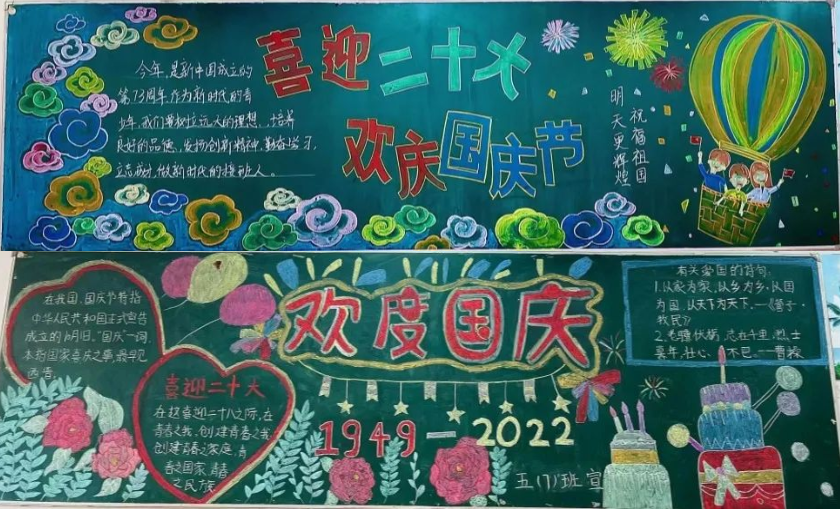 今年,是新中国成立的
第73周年作为新时代的青
少年,我们要树立远大的理想,培养
良好的品德,发扬创新精神,勤奋学习,
立志成才,做新时代的接班人。
喜迎二十大
欢庆国庆节
祝福祖国
明天更辉煌
在我国,国庆节特指
中华人民共和国正式宣告
成立的10月1日,"国庆"一词,
本指国家喜庆之事,最早见
西晋.
喜迎二十大
在赵喜迎二十大之际,在
青春之我,创建青春之我
创建青春之家庭,青
春之国家,青春
之民族
欢度国庆
1949-2022
五(7)班宣
有关爱国的诗句:
1.以家为家,以乡为乡,以国
为国,以天下为天下.—《管子·
牧民》
2.老骥伏枥,志在千里.烈士
暮年,壮心不已.—曹操